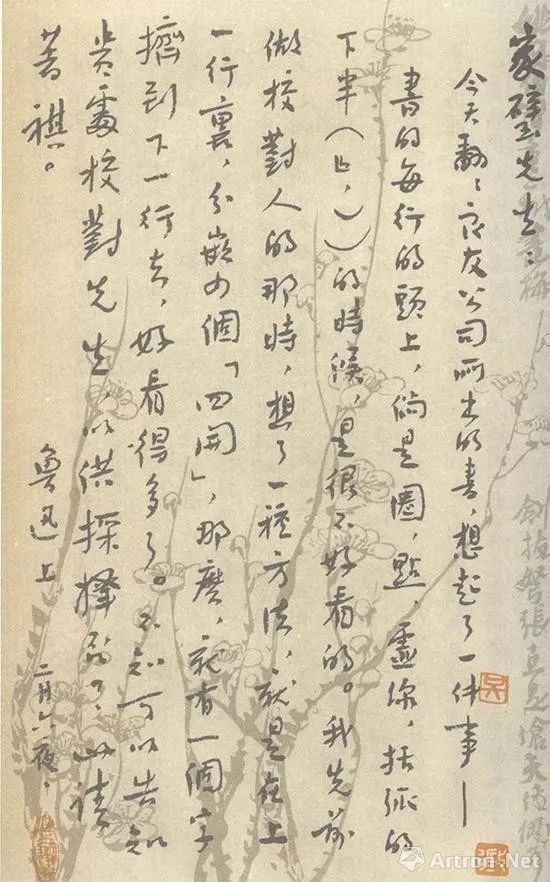 家璧先生：
今天翻翻良友公司所出的書，想起了一件事——
書的每行的頭上，倘是圈，點，虛線，括弧的
下半（﹂，））的時候，是很不好看的。我先前
做校對人的那時，想了一種方法，就是在上
一行裏，分嵌四個「四開」，那麼，就有一個字
擠到下一行去，好看得多了。不知可以告知
貴處校對先生，以供採擇否？此請
著祺。
魯迅上 二月六夜，
Artron.Net